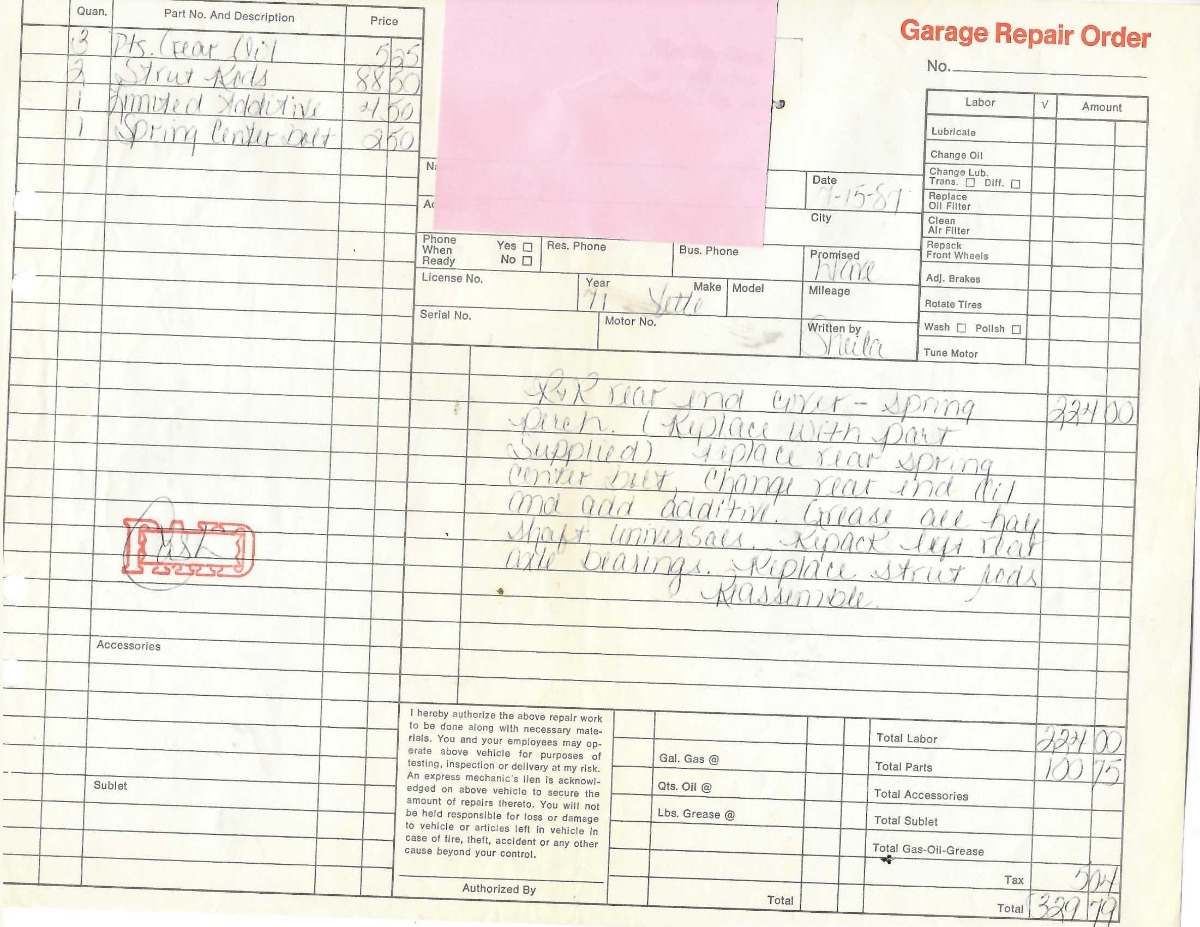 Garage Repair Order
No.
Quan. Part No. And Description Price
3 Pts. Gear Oil 5 25
2 Strut Rods 88 50
1 Limited Additive 4 50
1 Spring Center bolt 2 50
Labor √ Amount
Lubricate
Change Oil
Change Lub.
Trans. ☐ Diff. ☐
Replace
Oil Filter
Clean
Air Filter
Repack
Front Wheels
Adj. Brakes
Rotate Tires
Wash ☐ Polish ☐
Tune Motor
Date
7-15-87
City
Phone
When
Ready
Yes ☐
No ☐
Res. Phone
Bus. Phone
Promised
License No.
Year
71
Make
Vette
Model
Mileage
Serial No.
Motor No.
Written by
Sheila
R&R rear end cover - spring 224 00
perch. (Replace with part
Supplied) replace rear spring
center bolt, Change rear end Oil
and add additive. Grease all half
shaft universals. Repack left rear
axle bearings. Replace strut rods
Reassemble.
PAID
Cash
Accessories
Sublet
I hereby authorize the above repair work
to be done along with necessary mate-
rials. You and your employees may op-
erate above vehicle for purposes of
testing, inspection or delivery at my risk.
An express mechanic's lien is acknowl-
edged on above vehicle to secure the
amount of repairs thereto. You will not
be held responsible for loss or damage
to vehicle or articles left in vehicle in
case of fire, theft, accident or any other
cause beyond your control.
Authorized By
Gal. Gas @
Qts. Oil @
Lbs. Grease @
Total
Total Labor 224 00
Total Parts 100 75
Total Accessories
Total Sublet
Total Gas-Oil-Grease
Tax 5 04
Total 329 79